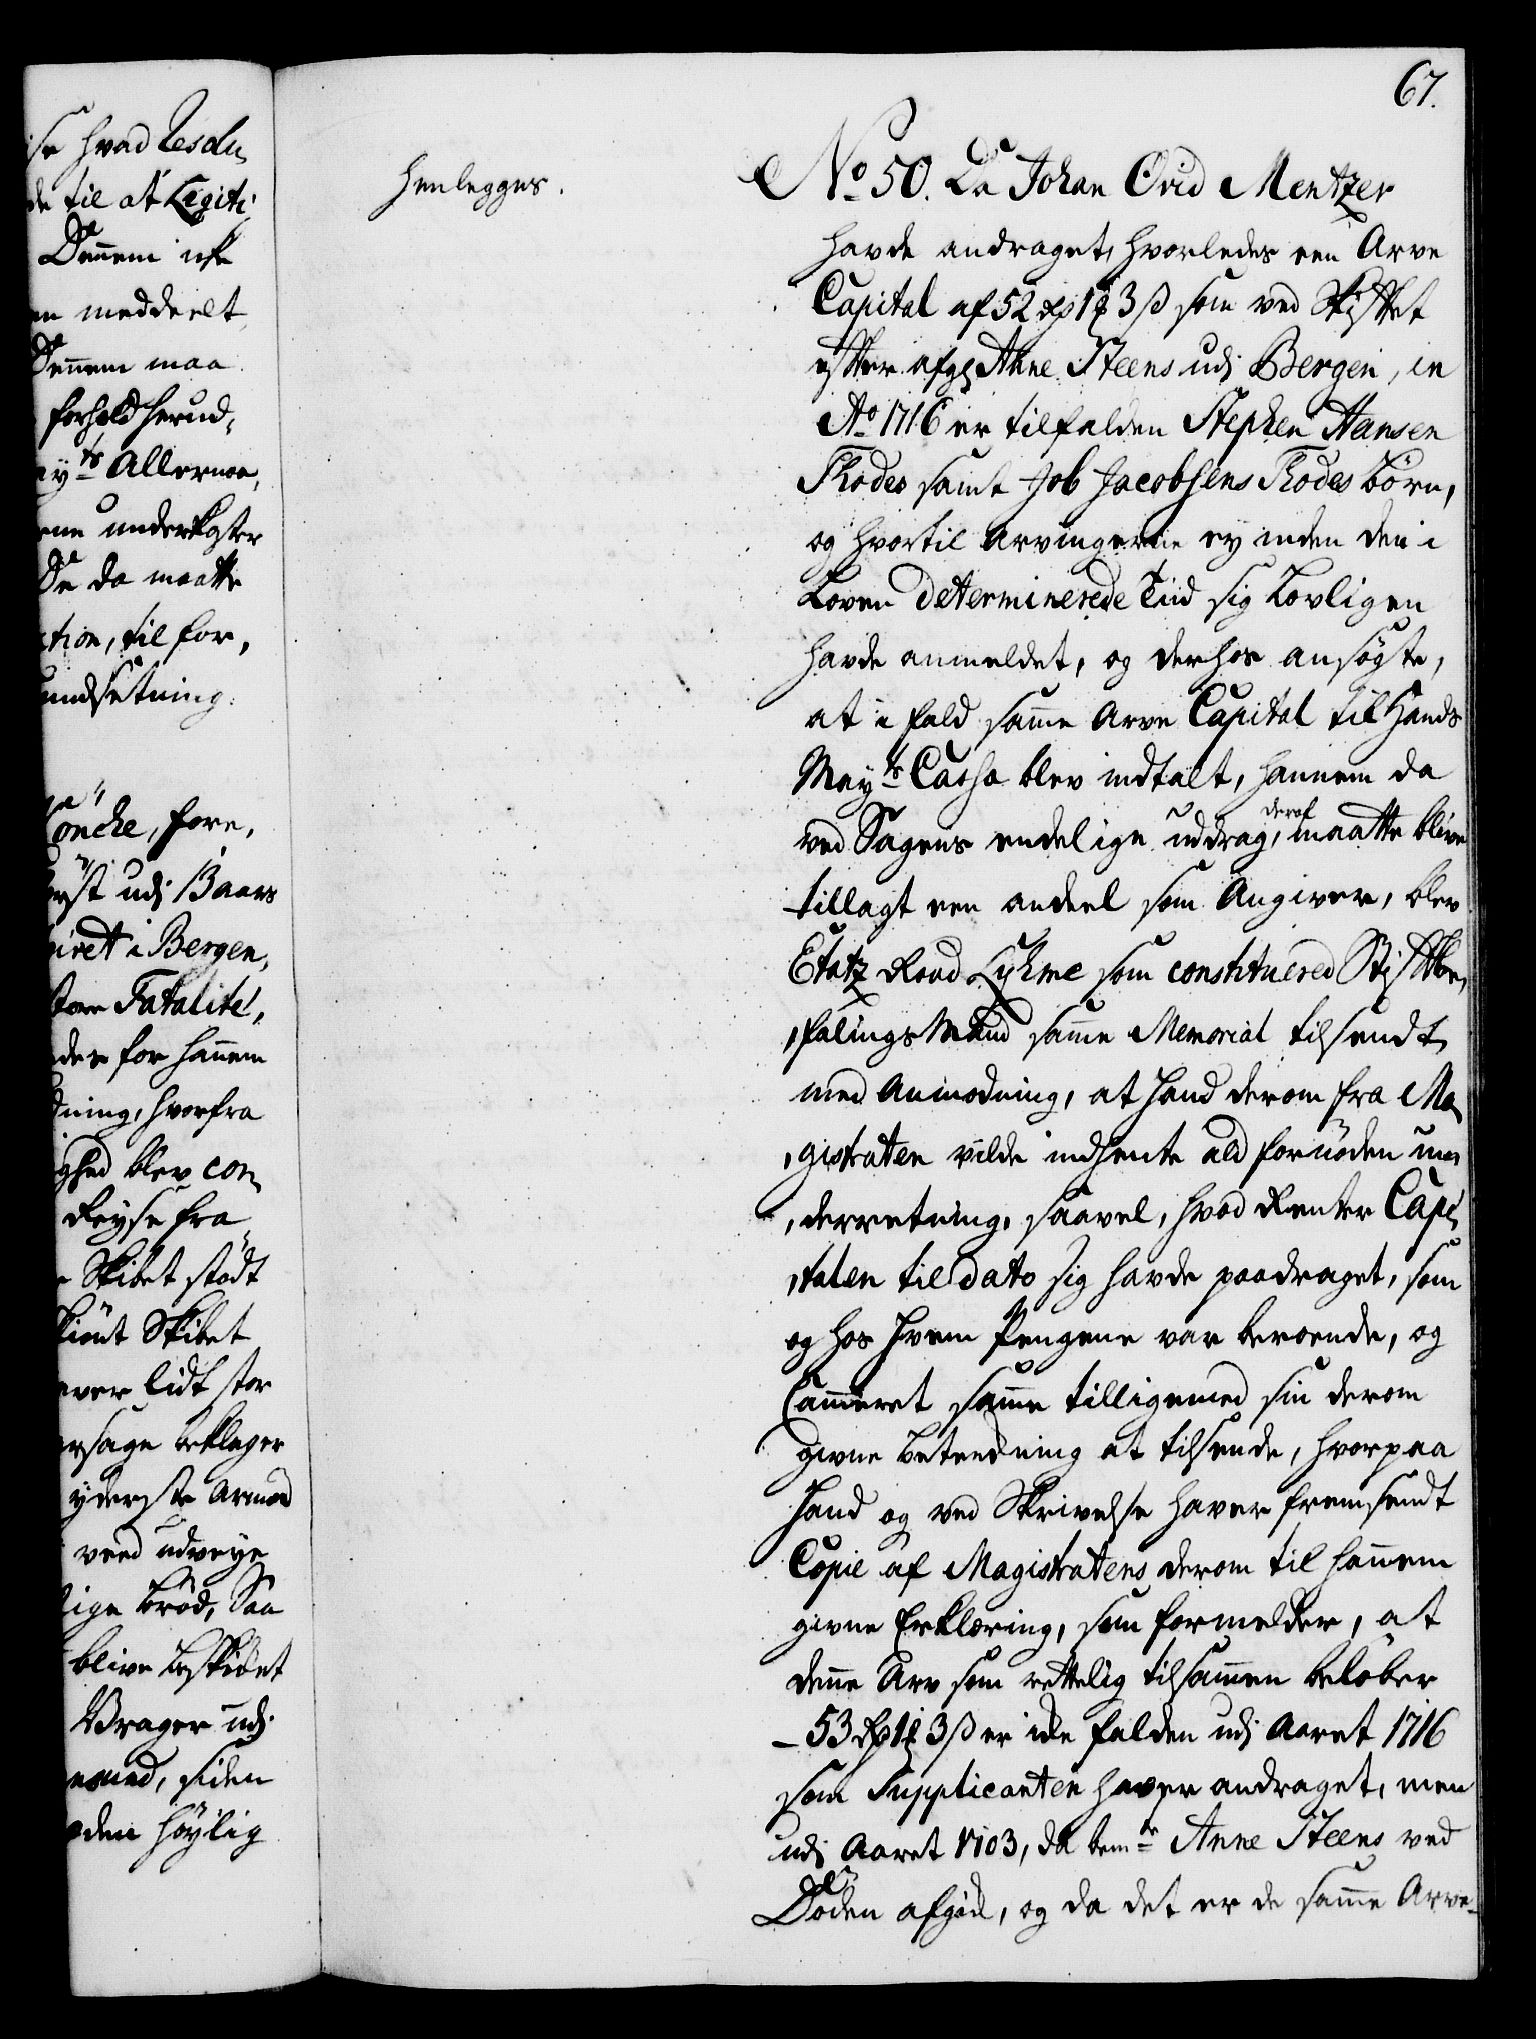 67.
ise hvad Resolu,
de til at Legiti,
Dennem ick
en meddeelt,
Dennem maa
forhold herud,
ayts Allernaa,
ene underkaster
De da maatte
ction, til for,
undsetning.
öncke, fore,
ørst udj Baars
iret i Bergen,
store Fatalite,
des for hannem
dning, hvorfra
ghed blev con,
Reyse fra
Skibet stödt
Skiönt Skibet
ever lidt stor
rsage beklager
yderste Armod
veed udveye
lige Bröd, Saa
blive beskiönet
Vrager udj
esmed, siden
oden höylig
Henlegges.
No 50. Da Johan Ovid Mentzer
havde andraget, hvorledes een Arve
Capital af 52 Rdr 1 ₰ 3 ß som ved Skiftet
efter afg: Anne Steens udj Bergen, in
Ao 1716 er tilfalden Stephen Hansen
Thodes samt Job Jacobsens Thodes Börn,
og hvortil Arvingerne ey inden den i
Loven determinerede Tiid sig Lovligen
havde anmeldet, og derhos ansögte,
at i fald samme Arve Capital til Hands
Mayts Cassa blev indtalt, hannem da
ved Sagens endelige uddrag, deraf maatte blive
tillagt een andeel som Angiver, blev
Etatz Raad Lyhme som constituered Stiftbe,
,falingsMand samme Memorial tilsendt
med Anmodning, at hand derom fra Ma,
,gistraten vilde indhente ald fornöden un,
,derretning, saavel, hvad Renter Capi,
,talen til dato sig havde paadraget, som
og hos hvem Pengene var beroende, og
Cammeret samme tilligemed sin derom
givne betenckning at tilsende, hvorpaa
hand og ved Skrivelse haver fremsendt
Copie af Magistratens derom til hannem
givne Erklæring, som formelder, at
denne Arv som rettelig tilsammen belöber
53 Rdr 1 ₰ 3 ß er icke falden udj Aaret 1716
som Supplicanten haver andraget, men
udj Aaret 1703, da bemte Anne Steens ved
Döden afgick, og da det er de samme Arve-